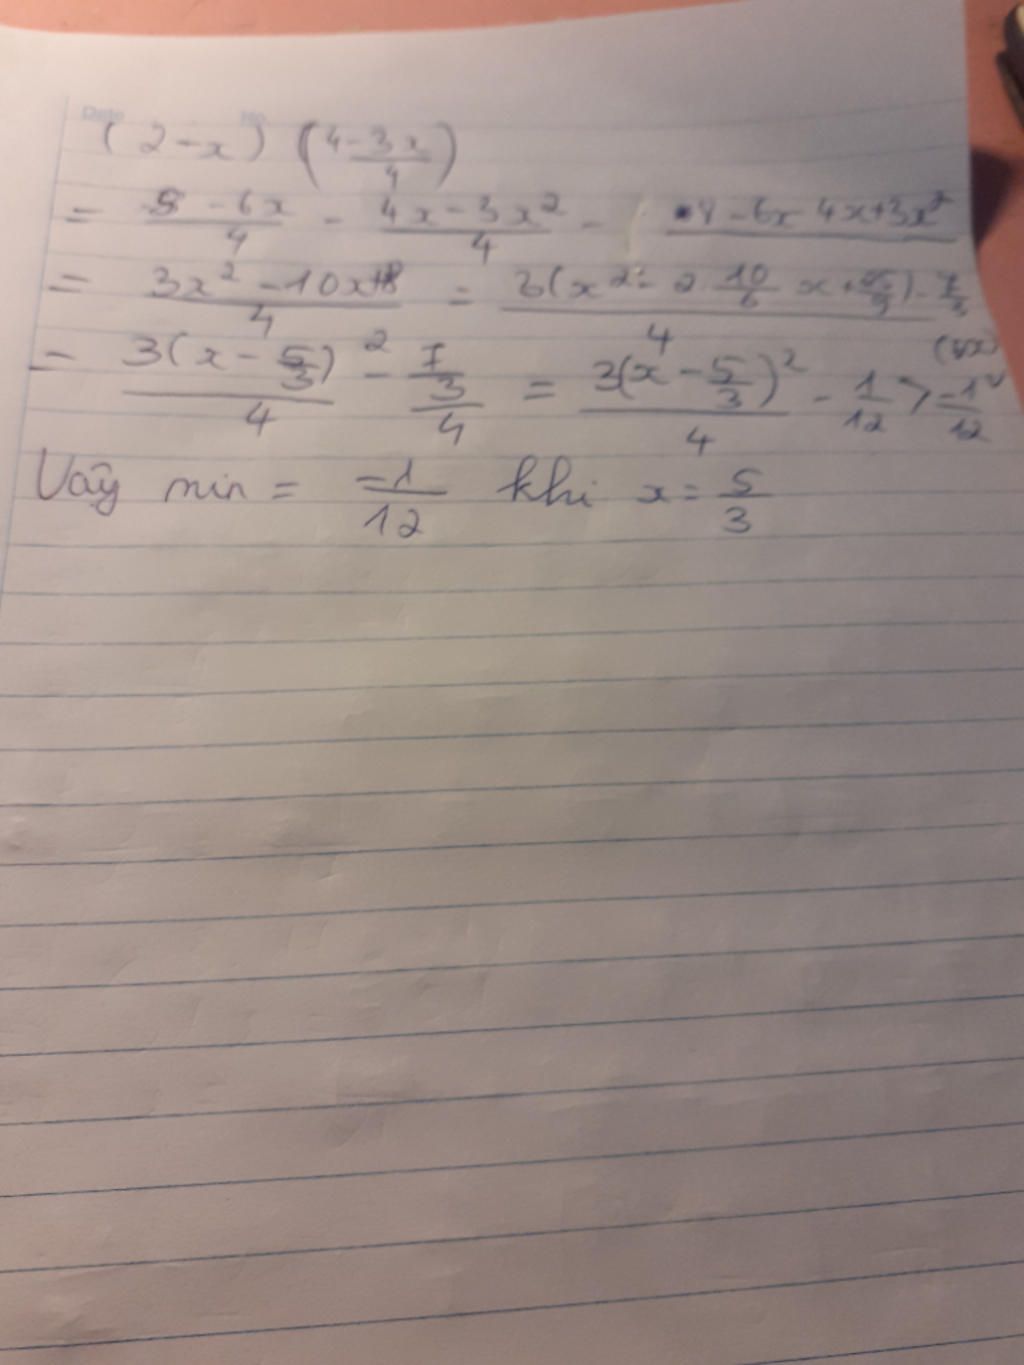 Date No.
(2-x) (4-3x/4)
= 8-6x/4 - 4x-3x²/4 - -6x-4x+3x²
= 3x²-10x+8/4 = 3(x²-2 10/6 x+25/9)-
= 3(x-5/3)²/4 - 1/3/4 = 3(x-5/3)²/4 - 1/12 > -1/12 (∀x)
Vây min = -1/12 khi x = 5/3